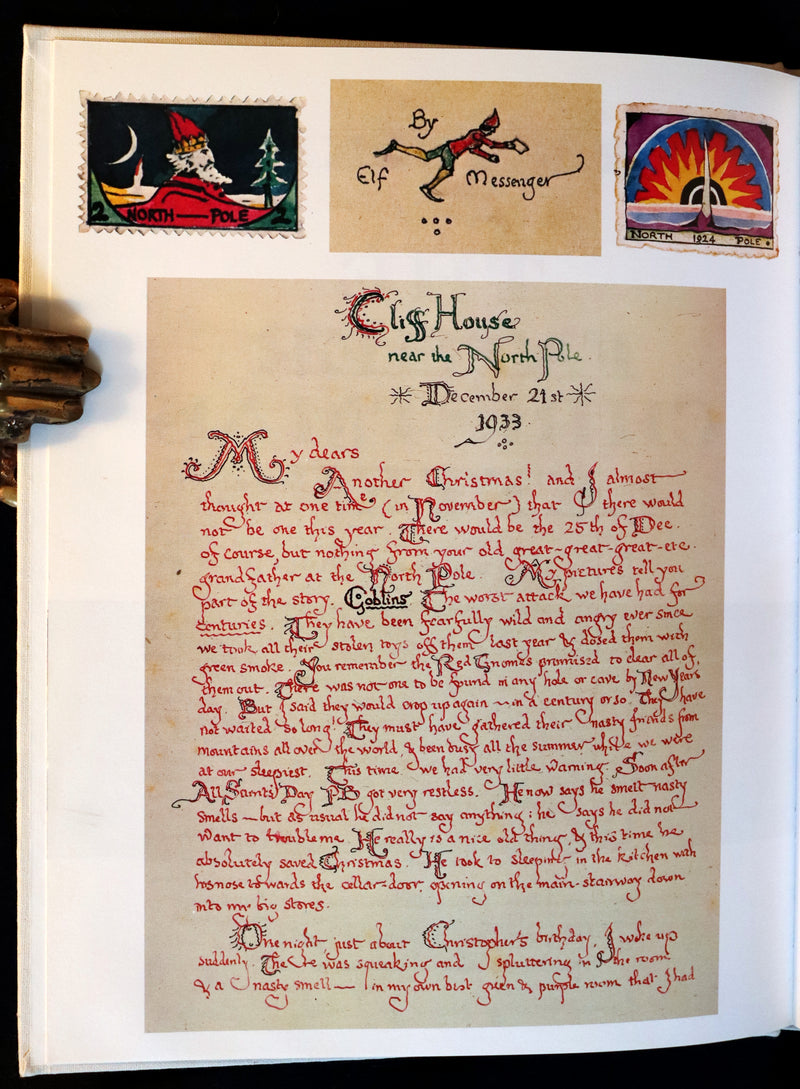 2 NORTH — POLE 2
By
Elf Messenger
NORTH 1924 POLE
Cliff House
near the North Pole.
December 21st
1933
My dears
Another Christmas! and I almost
thought at one time (in November) that there would
not be one this year. There would be the 25th of Dec.
of course, but nothing from your old great-great-great-etc.
grandfather at the North Pole. My pictures tell you
part of the story. Goblins. The worst attack we have had for
centuries. They have been fearfully wild and angry ever since
we took all their stolen toys off them last year & dosed them with
green smoke. You remember the Red Gnomes promised to clear all of
them out. There was not one to be found in any hole or cave by New Years
day. But I said they would crop up again — in a century or so. They have
not waited so long! They must have gathered their nasty friends from
mountains all over the world, & been busy all the summer while we were
at our sleepiest. This time we had very little warning. Soon after
All Saints' Day PB got very restless. He now says he smelt nasty
smells — but as usual he did not say anything: he says he did not
want to trouble me. He really is a nice old thing, & this time he
absolutely saved Christmas. He took to sleeping in the kitchen with
his nose towards the cellar-door opening on the main-stairway down
into my big stores.
One night, just about Christopher's birthday, I woke up
suddenly. There was squeaking and spluttering in the room
& a nasty smell — in my own best green & purple room that I had